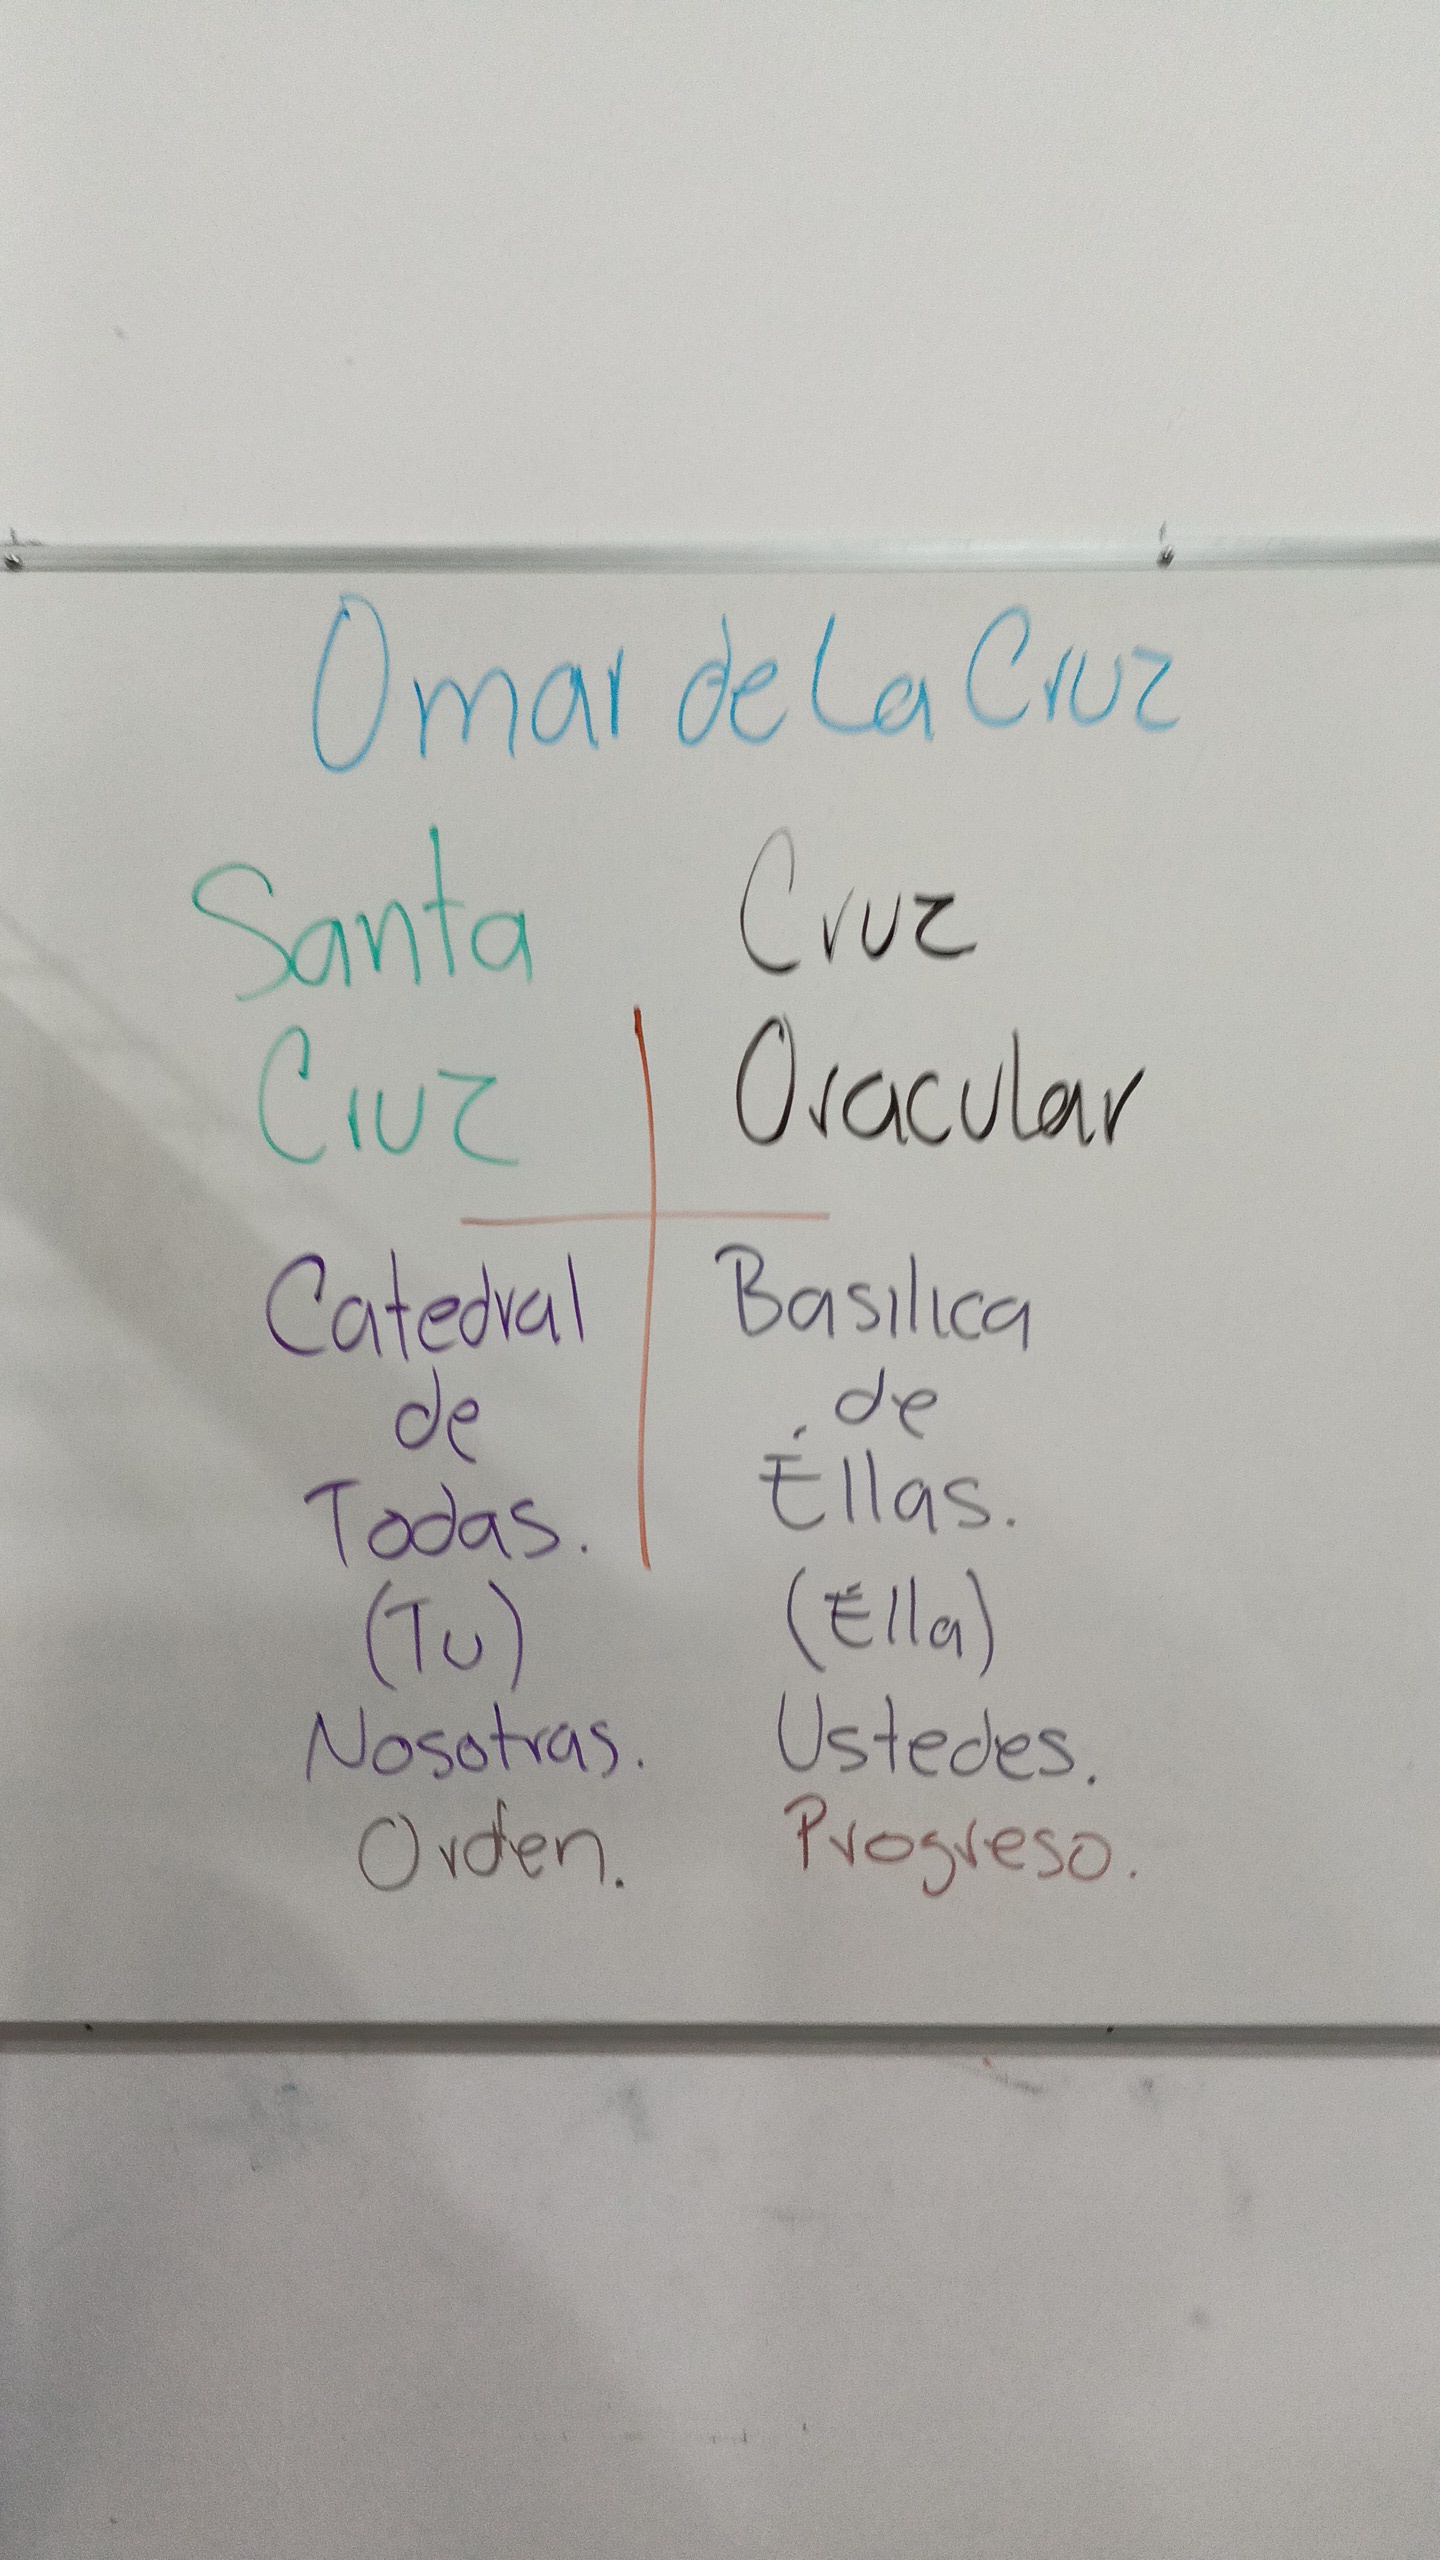 Omar de La Cruz
Santa
Cruz
Catedral
de
Todas.
(Tu)
Nosotras.
Orden.
Cruz
Oracular
Basilica
de
Éllas.
(Élla)
Ustedes.
Progreso.